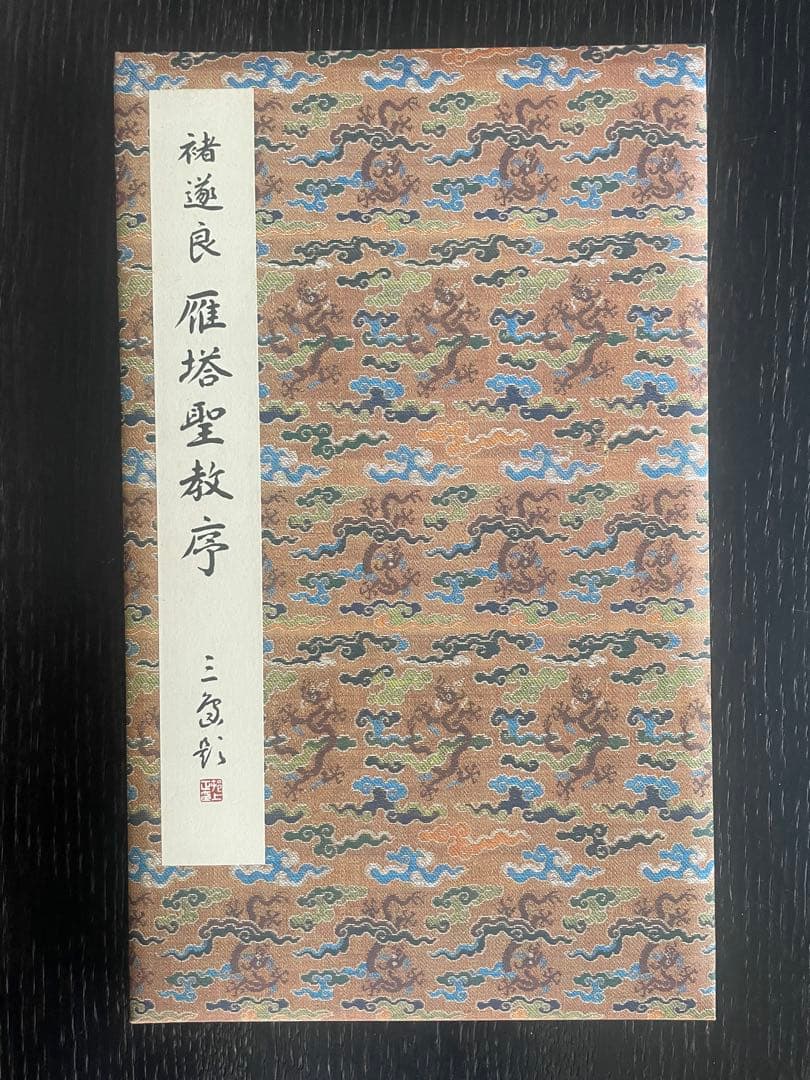 褚遂良 雁塔聖教序
三